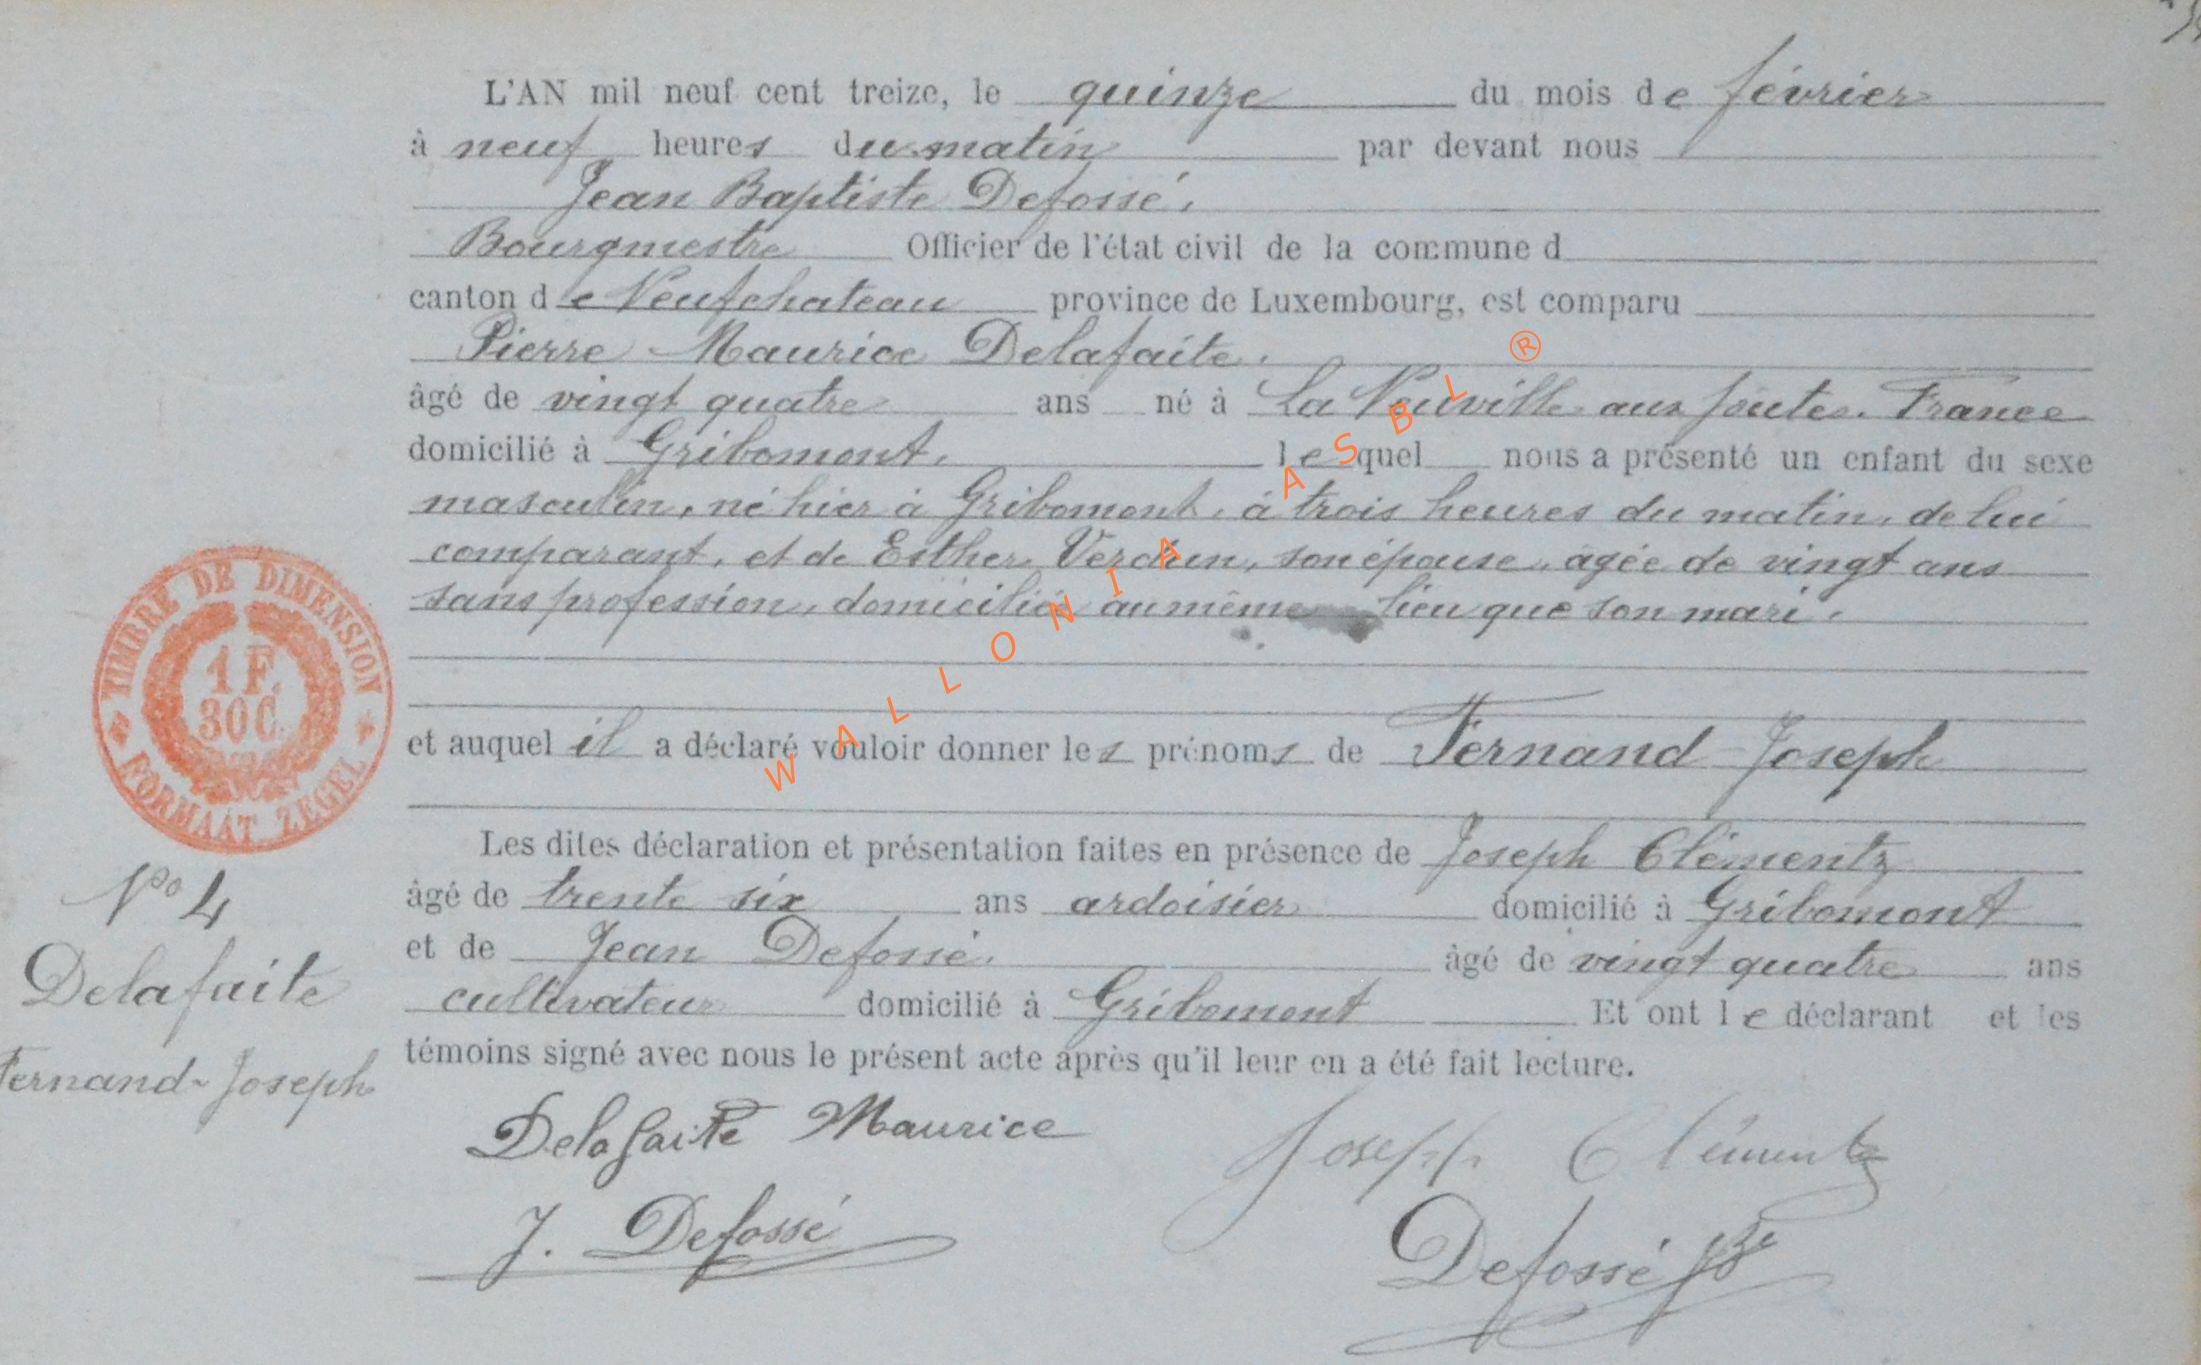 L'AN mil neuf cent treize, le quinze du mois de février
à neuf heures du matin par devant nous
Jean Baptiste Defossé,
Bourgmestre Officier de l'état civil de la commune d
canton de Neufchateau province de Luxembourg, est comparu
Pierre Maurice Delafaite,
âgé de vingt quatre ans né à La Neuville aux Joutes. France
domicilié à Gribomont, lequel nous a présenté un enfant du sexe
masculin, né hier à Gribomont, à trois heures du matin, de lui
comparant, et de Esther son épouse, agée de vingt ans
sans profession, domiciliée au même lieu que son mari.
et auquel il a déclaré vouloir donner les prénoms de Fernand-Joseph
Les dites déclaration et présentation faites en présence de Joseph Clémentz
âgé de trente six ans ardoisier domicilié à Gribomont
et de Jean Defossé, âgé de vingt quatre ans
cultivateur domicilié à Gribomont Et ont le déclarant et les
témoins signé avec nous le présent acte après qu'il leur en a été fait lecture.
Delafaite Maurice Joseph Clémentz
J. Defossé Defossé
TIMBRE DE DIMENSION
1 F.
30 C.
FORMAAT ZEGEL
N° 4
Delafaite
Fernand-Joseph
WALLONIA ASBL ®